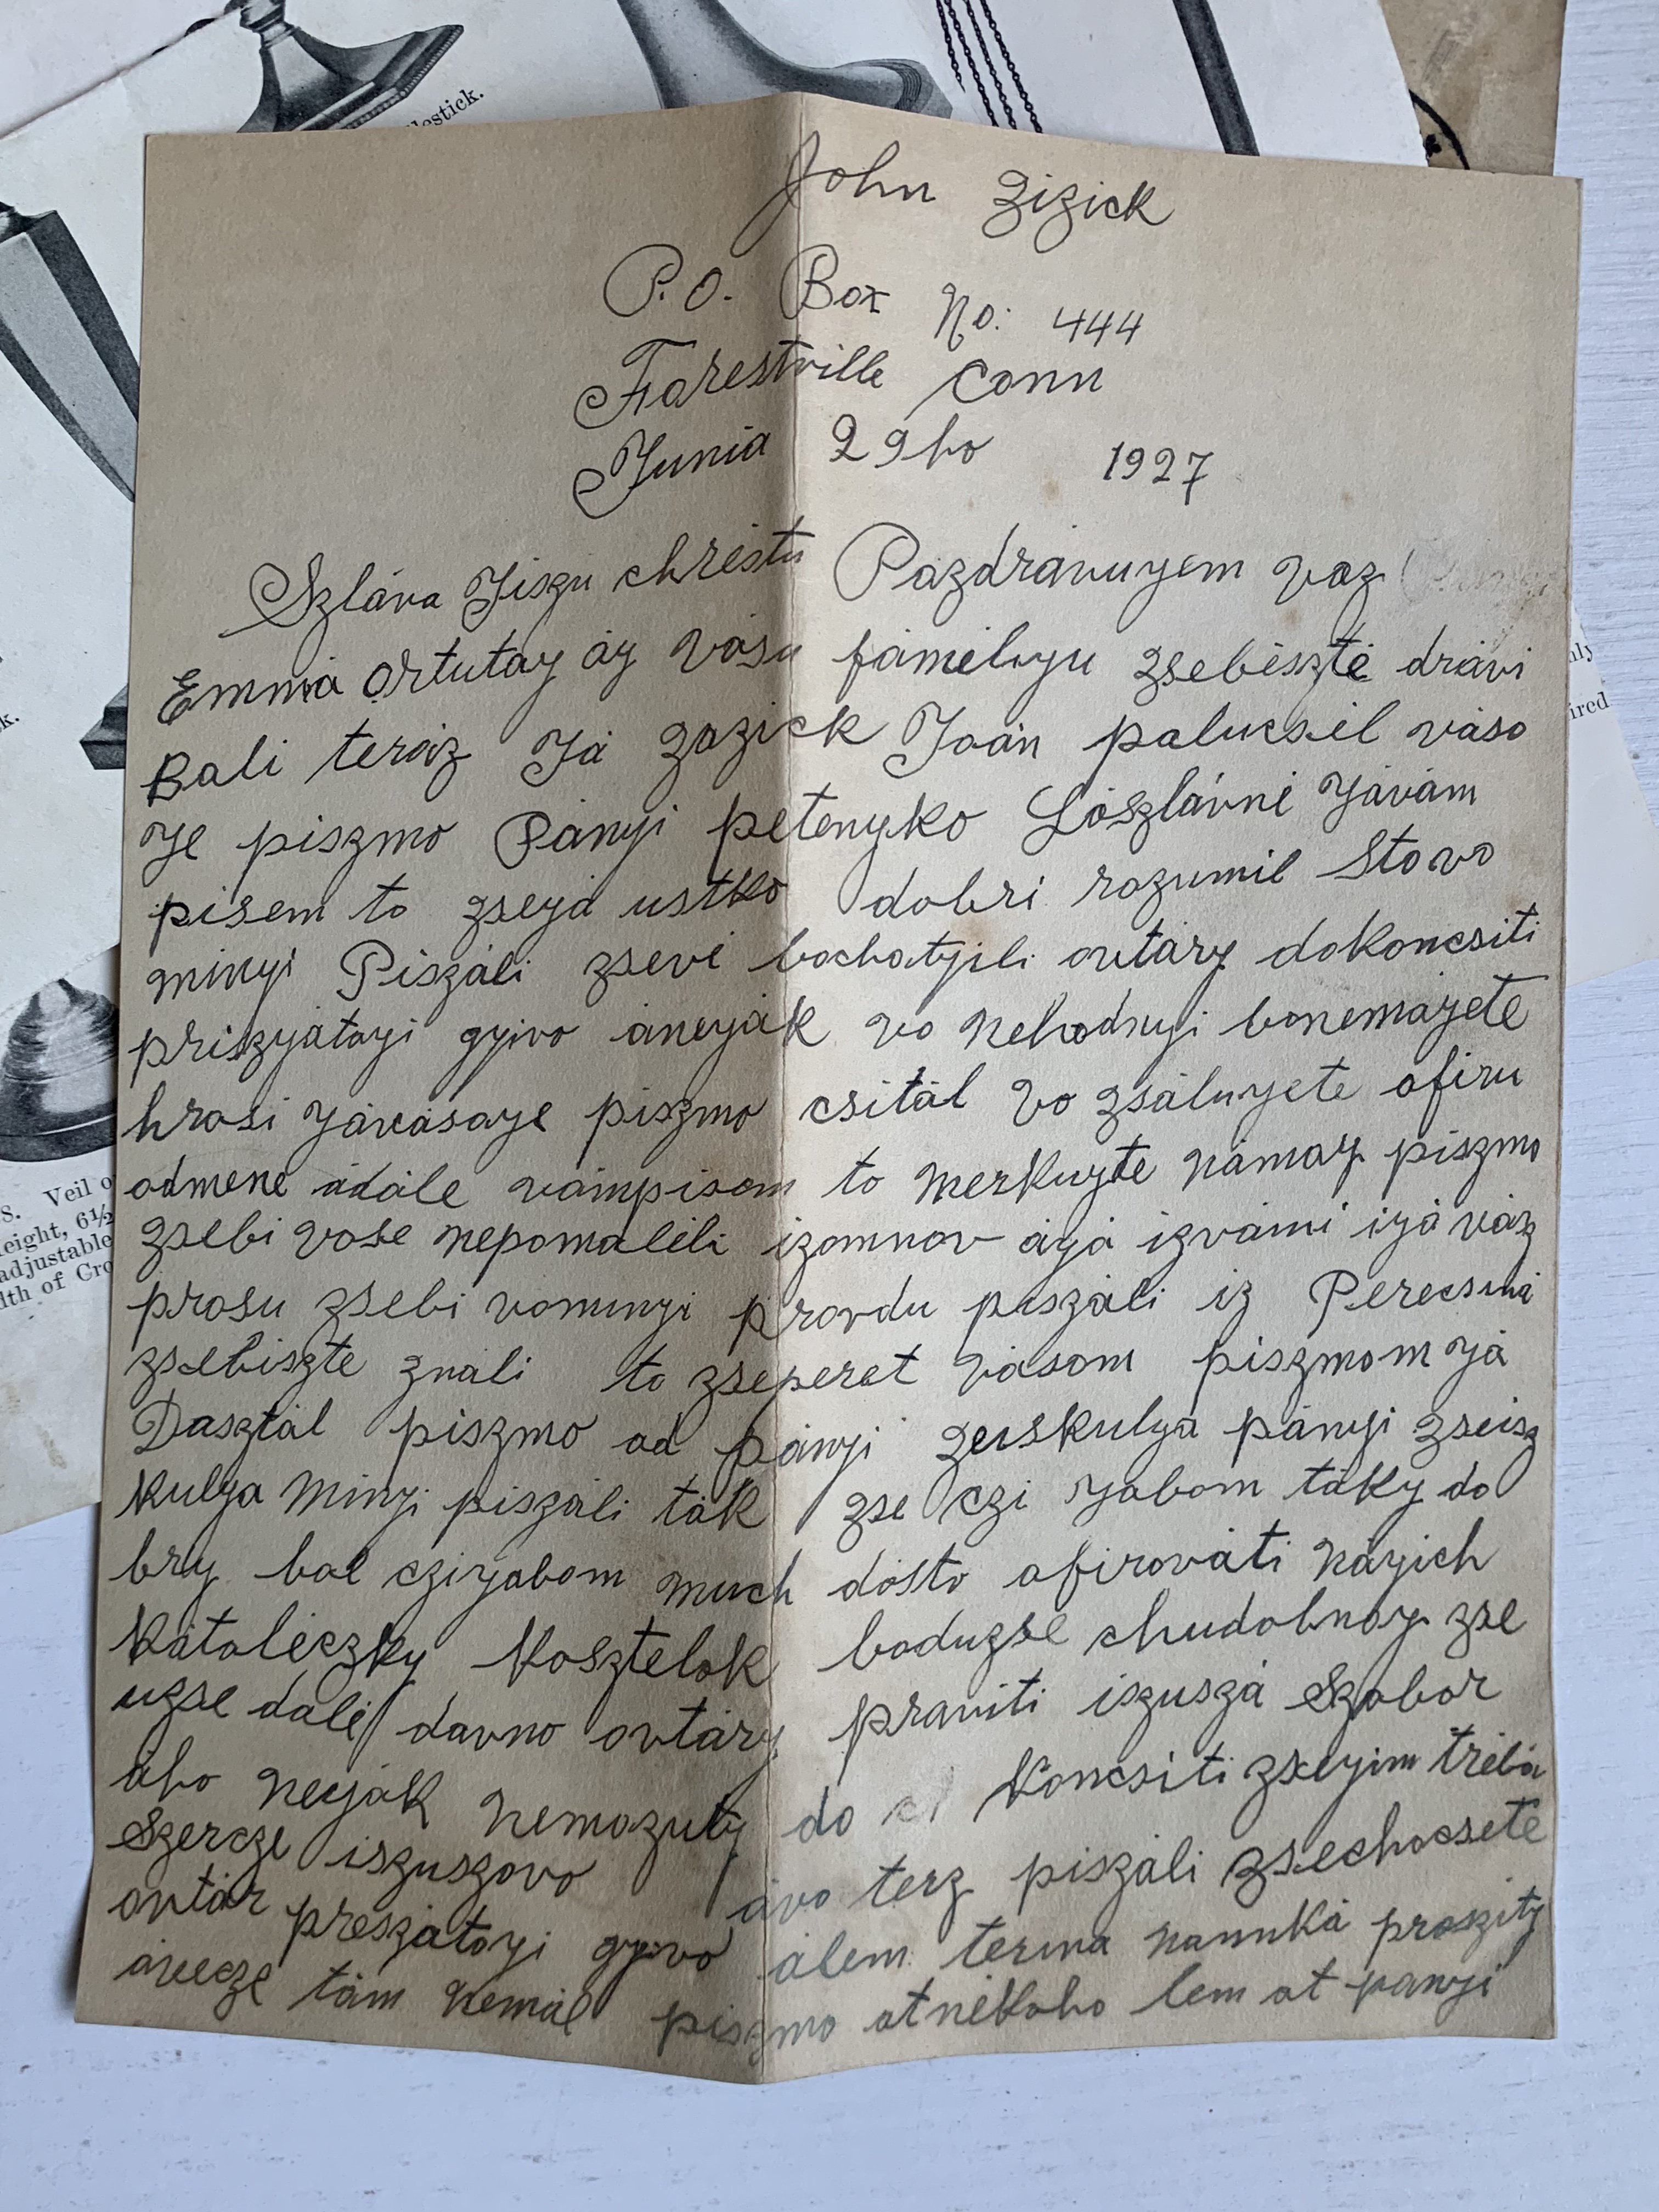 lestick.
John Zizick
P.O. Box No: 444
Forestville Conn
Junia 29ho 1927
Szláva Jiszu christu Pazdrávuyem vaz
Emma Ortutay áy vásu fámeluyu zsebészte drávi
Bali teráz Já Zazick Joán palucsil váso
Je piszmo Pányi petenyko Lószlávné Jávám
pisem to zseyá ustko dobri rozumil Stovo
minyi Piszáli zsevi bochatyili ovtáry dokoncsiti
priszyátoyi gyivo áneyák vo nehodnyi bonemáyete
hrosi Jávásaye piszmo csitál vo zsáluyete ofiru
odmene ádále vámpisom to merkuyte námay piszmo
zsebi vose nepomaleli izomnov áyá izvámi iyá váz
prosu zsebi vominyi provdu piszáli iz Perecsiná
zsebiszte ználi to zseperet vásom piszmom Já
Dasztál piszmo od pányi Zeiskulya pányi zseisz
kulya minyi piszáli ták zse czi Jabom táky do
bry bal cziyabom much dosto ofirováti náyich
Kátoleczky Kosztelok boduzse chudobnay zse
uzse dále davno ovtáry praviti iszuszá Szobor
áho neyák nemozuty do Koncsiti zseyim trébá
Szercze iszuszovo ávo terz piszáli zsechocsete
ovtár preszátoyi gyvo álem terma nanuká proszity
áveczе tám nemál piszmo otnékoho lem ot pányi
k.
s. Veil o
eight, 6½
adjustable
dth of Cro
ired